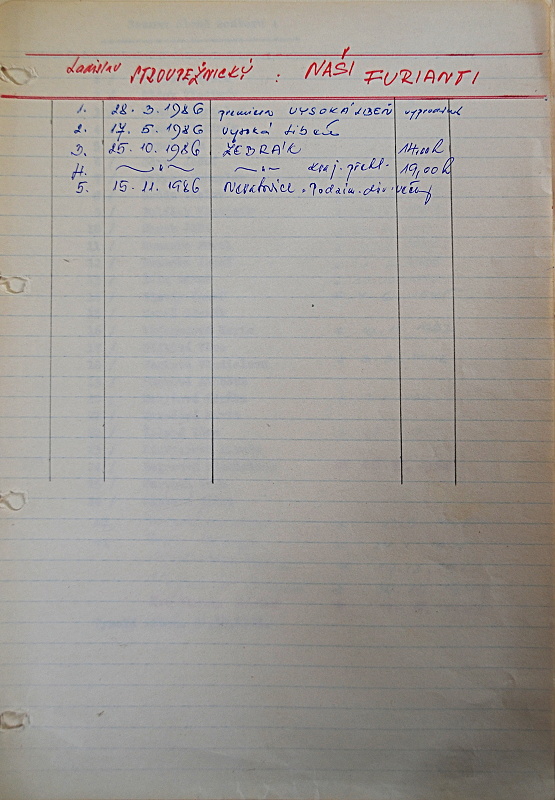 Ladislav STROUPEŽNICKÝ : NAŠI FURIANTI
1. 28. 3. 1986 premiera VYSOKÁ LIBEŇ vyprodané
2. 17. 5. 1986 Vysoká Libeň
3. 25. 10. 1986 ŽEBRÁK 14,00h
4. —"— —"— kraj. přehl. 19,00h
5. 15. 11. 1986 Neratovice. Podzim. div. večery